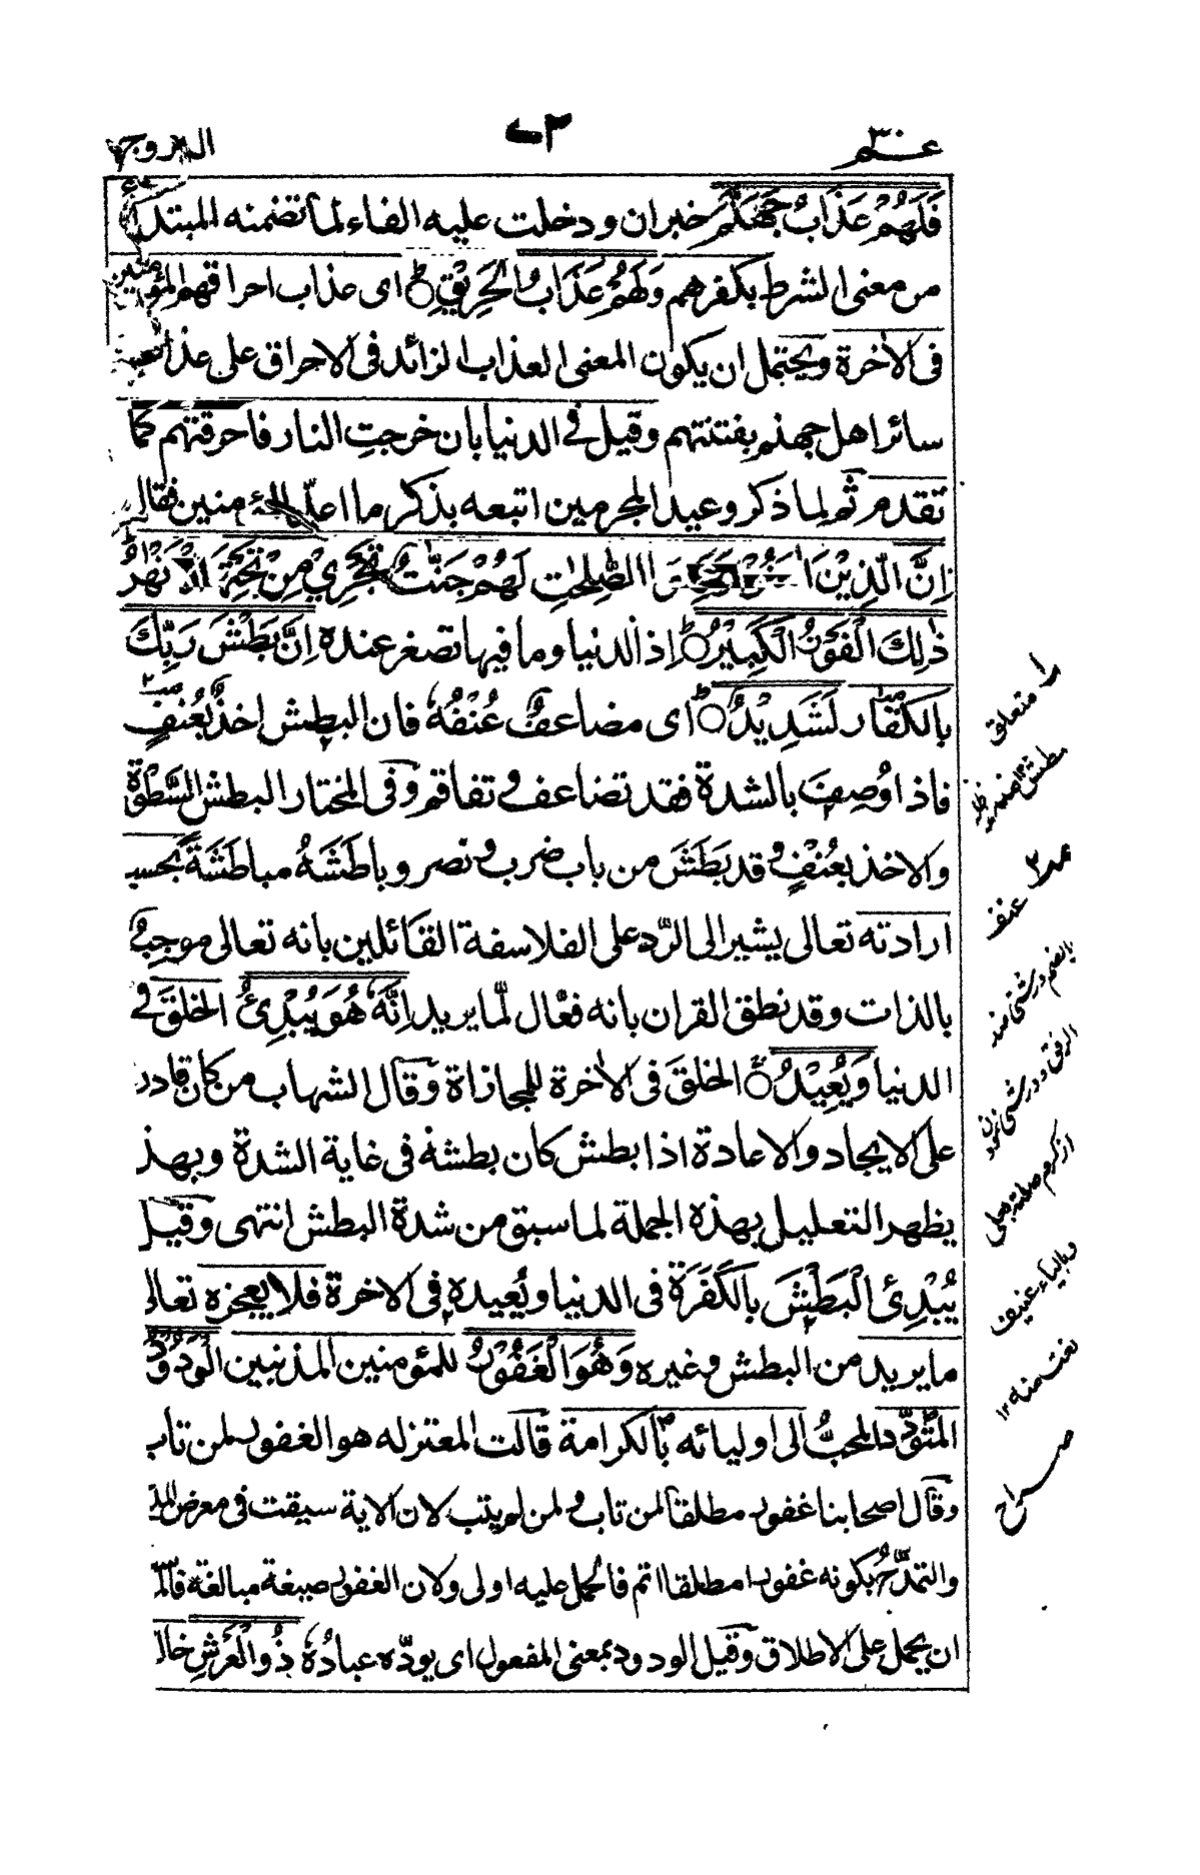 عم٣٠ ٧٢ البروج
فَلَهُمْ عَذَابُ جَهَنَّمَ خبر ان ودخلت عليه الفاء لما تضمنه المبتدأ
من معنى الشرط بكفرهم وَلَهُمْ عَذَابُ الْحَرِيْقِ ای عذاب احراقهم المؤمنين
فى الاٰخرة ويحتمل ان يكون المعنى العذاب الزائد فى الاحراق على عذاب
سائر اهل جهنم بفتنتهم وقيل فے الدنيا بان خرجتِ النار فاحرقتهم كما
تقدم ثم لما ذكر وعيد المجرمين اتبعه بذكر ما اعدّ للمؤمنين فقال
اِنَّ الَّذِيْنَ اٰمَنُوْا وَعَمِلُوا الصّٰلِحٰتِ لَهُمْ جَنّٰتٌ تَجْرِيْ مِنْ تَحْتِهَا الْاَنْهٰرُ
ذٰلِكَ الْفَوْزُ الْكَبِيْرُ اِذ الدنيا وما فيها تصغر عنده اِنَّ بَطْشَ رَبِّكَ
بالكفّار لَشَدِيْدٌ ای مضاعفٌ عُنْفُهٗ فان البطش اخذٌ بعُنفٍ
فاذا وُصِفَ بالشدة فقد تضاعف وتفاقم وفى المختار البطش السَّطْوَة
والاخذ بعُنْفٍ وقد بَطَشَ من باب ضرب ونصر وباطَشَهُ مباطَشَةً بحسب
ارادته تعالى يشير الى الرّد على الفلاسفة القائلين بانه تعالى موجِبٌ
بالذات وقد نطق القران بانه فعّال لّما يريد اِنَّهٗ هُوَ يُبْدِئُ الخلقَ فے
الدنيا وَيُعِيْدُ الخلقَ فى الاٰخرة للمجازاة وقال الشهاب من كان قادر
على الايجاد والاعادة اذا بطش كان بطشه فى غاية الشدة وبهذ
يظهر التعليل بهذه الجملة لما سبق من شدة البطش انتهى وقيل
يُبْدِئُ الْبَطْشَ بالكَفَرَة فى الدنيا ويُعِيده فى الاخرة فلا يعجزه تعالى
ما يريد من البطش وغيره وَهُوَ الْغَفُوْرُ للمؤمنين المذنبين الْوَدُوْدُ
المتودّد المحبُّ الى اوليائه بالكرامة قالت المعتزله هو الغفور لمن تاب
وقال اصحابنا غفور مطلقا لمن تاب ولمن لم يتب لان الاية سيقت فى معرض
والتمدّح بكونه غفورا مطلقا اتم فالحمل عليه اولى ولان الغفور صيغة مبالغة
ان يحمل على الاطلاق وقيل الودود بمعنى المفعول ای يودّه عبادُهٗ ذُو الْعَرْشِ
١ متعلق
عنف
بالضم درشتى ضد
الرفق ودرشتى نمودن
از كرم صلته بعلى
وبالباء عنيف
نعت منه ١٢
صراح